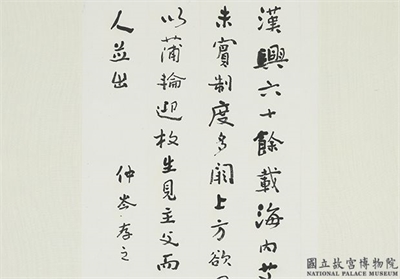 漢興六十餘載海內
未賓制度多闕上方欲
以蒲輪迎枚生見主父而
人並出
仲岑存之
國立故宮博物院
NATIONAL PALACE MUSEUM